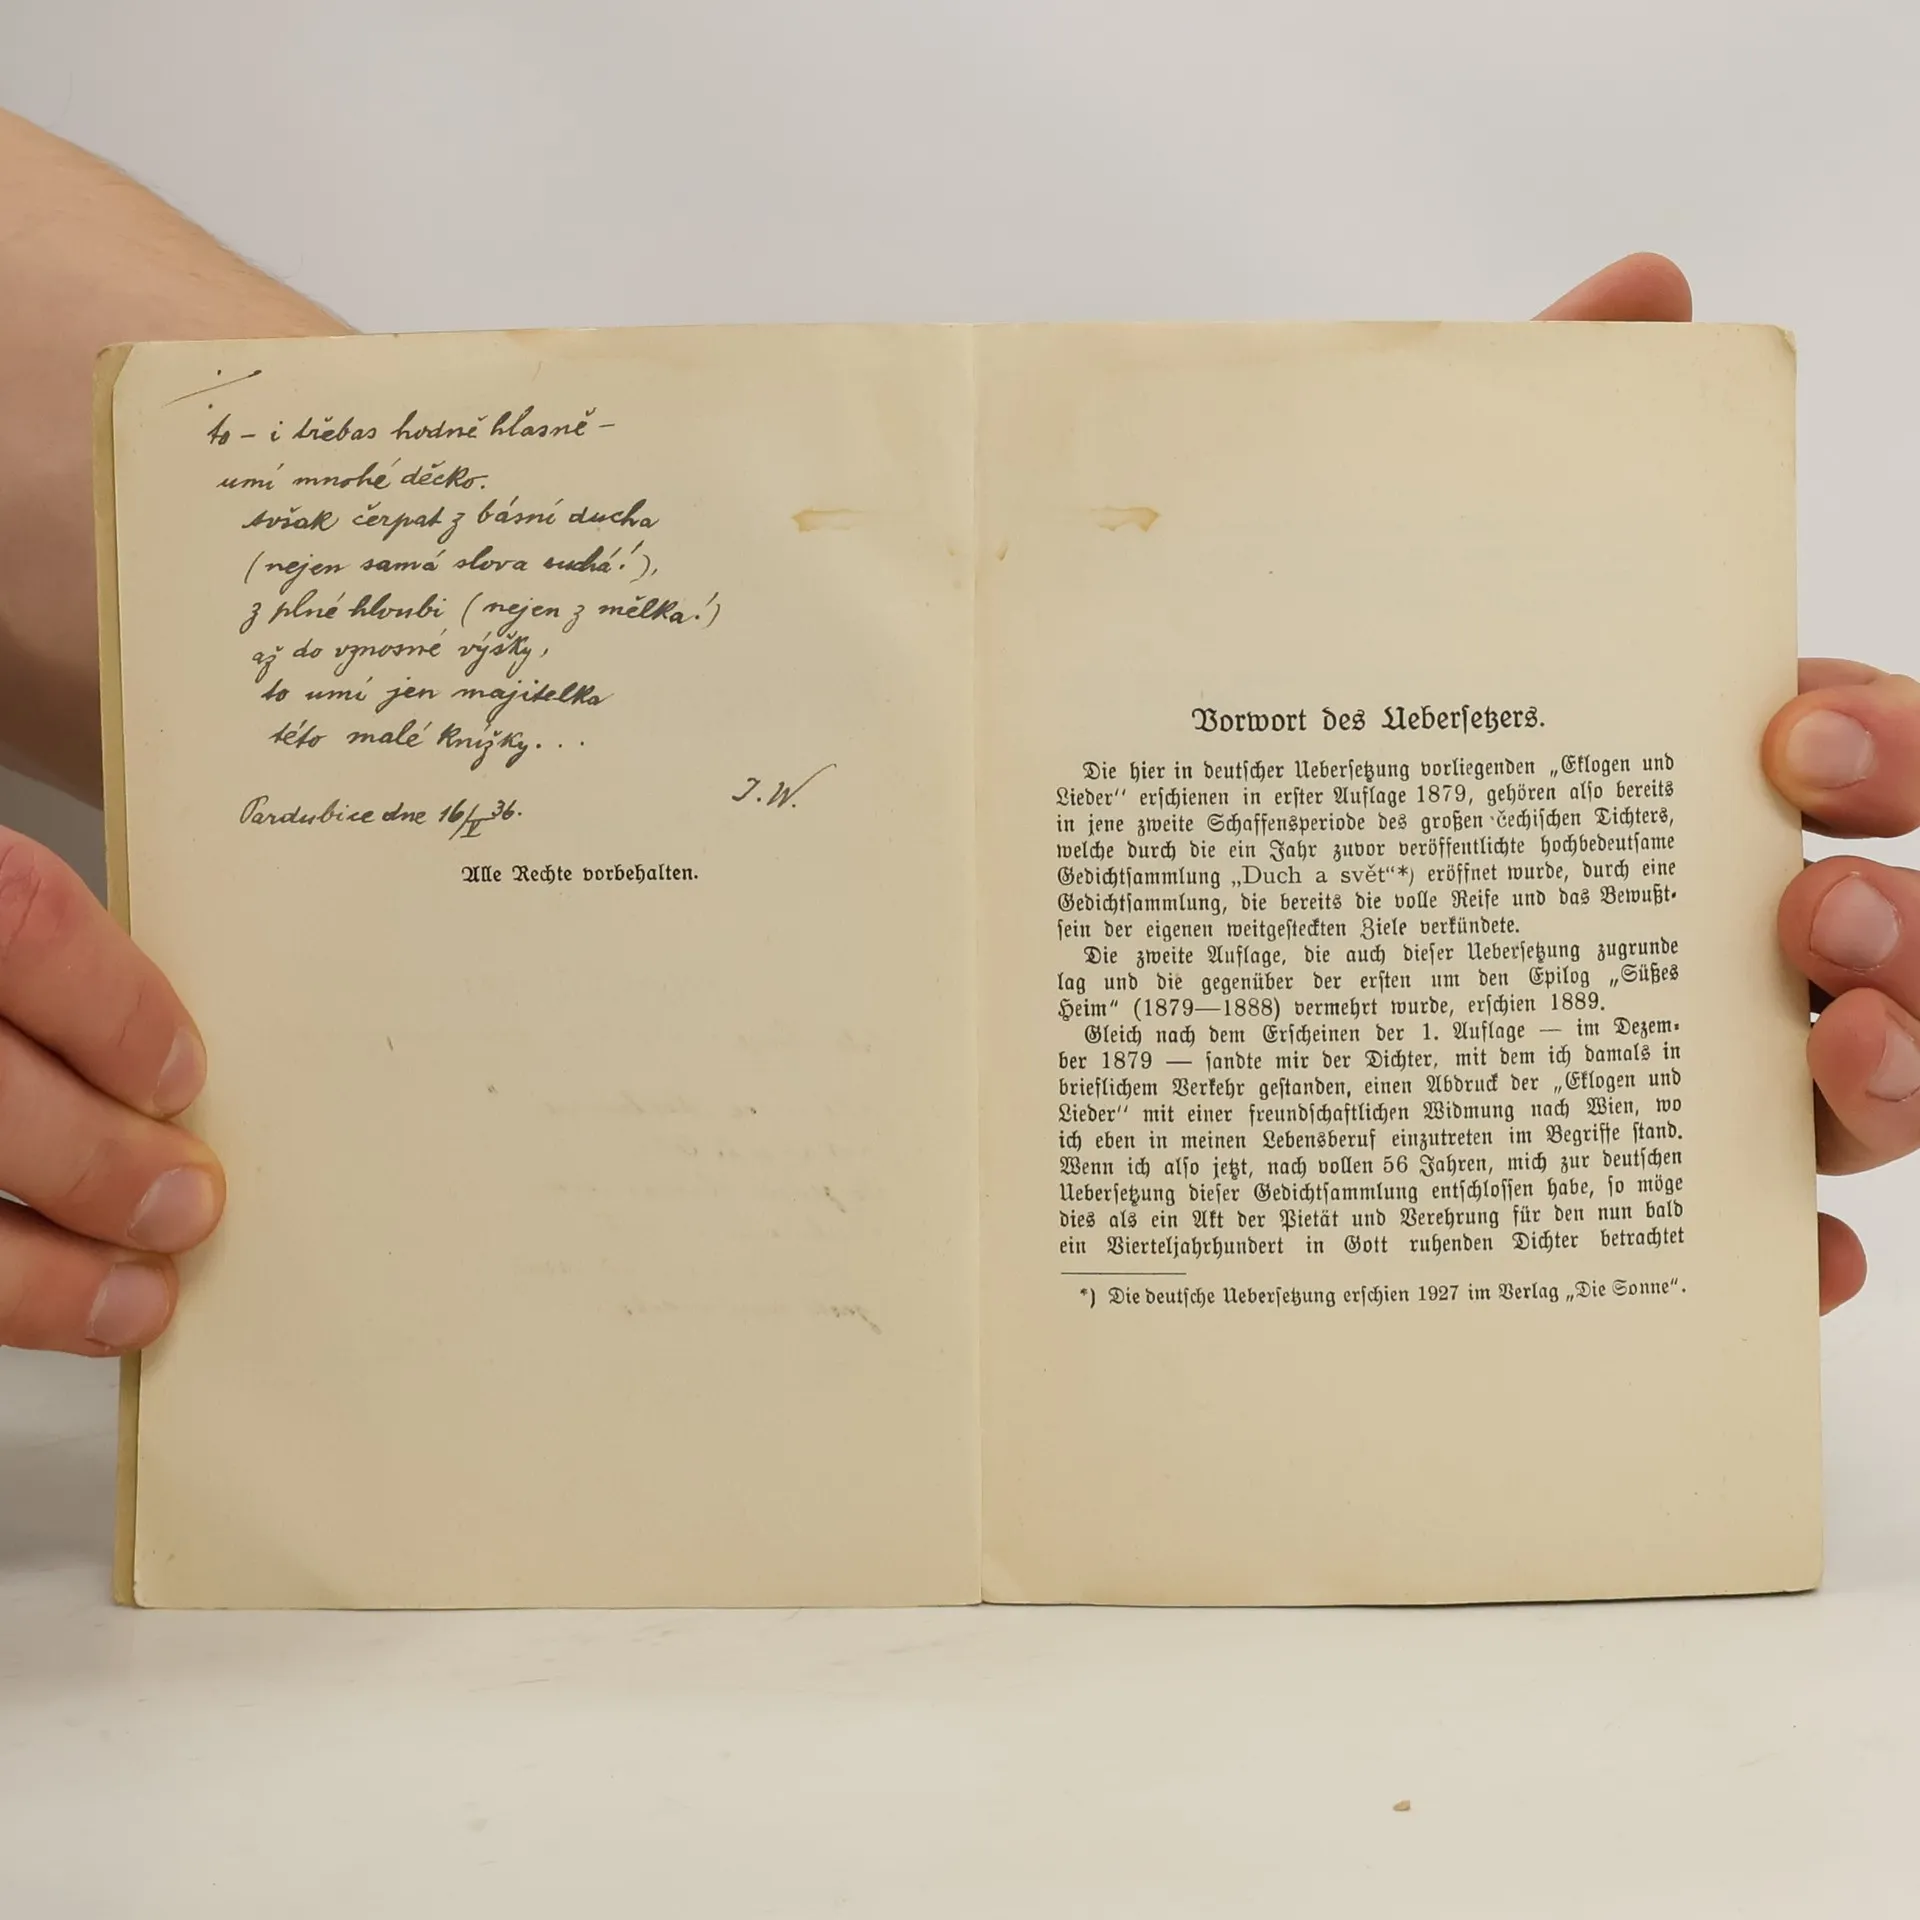 ./.
to – i třebas hodně hlasně –
umí mnohé děcko.
Avšak čerpat z básní ducha
(nejen samá slova suchá!),
z plné hloubi (nejen z mělka!)
až do vznosné výšky,
to umí jen majitelka
této malé knížky...
J. W.
Pardubice dne 16/V 36.
Alle Rechte vorbehalten.
Vorwort des Uebersetzers.
Die hier in deutscher Uebersetzung vorliegenden „Eklogen und
Lieder“ erschienen in erster Auflage 1879, gehören also bereits
in jene zweite Schaffensperiode des großen čechischen Dichters,
welche durch die ein Jahr zuvor veröffentlichte hochbedeutsame
Gedichtsammlung „Duch a svět“*) eröffnet wurde, durch eine
Gedichtsammlung, die bereits die volle Reife und das Bewußt-
sein der eigenen weitgesteckten Ziele verkündete.
Die zweite Auflage, die auch dieser Uebersetzung zugrunde
lag und die gegenüber der ersten um den Epilog „Süßes
Heim“ (1879—1888) vermehrt wurde, erschien 1889.
Gleich nach dem Erscheinen der 1. Auflage — im Dezem-
ber 1879 — sandte mir der Dichter, mit dem ich damals in
brieflichem Verkehr gestanden, einen Abdruck der „Eklogen und
Lieder“ mit einer freundschaftlichen Widmung nach Wien, wo
ich eben in meinen Lebensberuf einzutreten im Begriffe stand.
Wenn ich also jetzt, nach vollen 56 Jahren, mich zur deutschen
Uebersetzung dieser Gedichtsammlung entschlossen habe, so möge
dies als ein Akt der Pietät und Verehrung für den nun bald
ein Vierteljahrhundert in Gott ruhenden Dichter betrachtet
*) Die deutsche Uebersetzung erschien 1927 im Verlag „Die Sonne“.